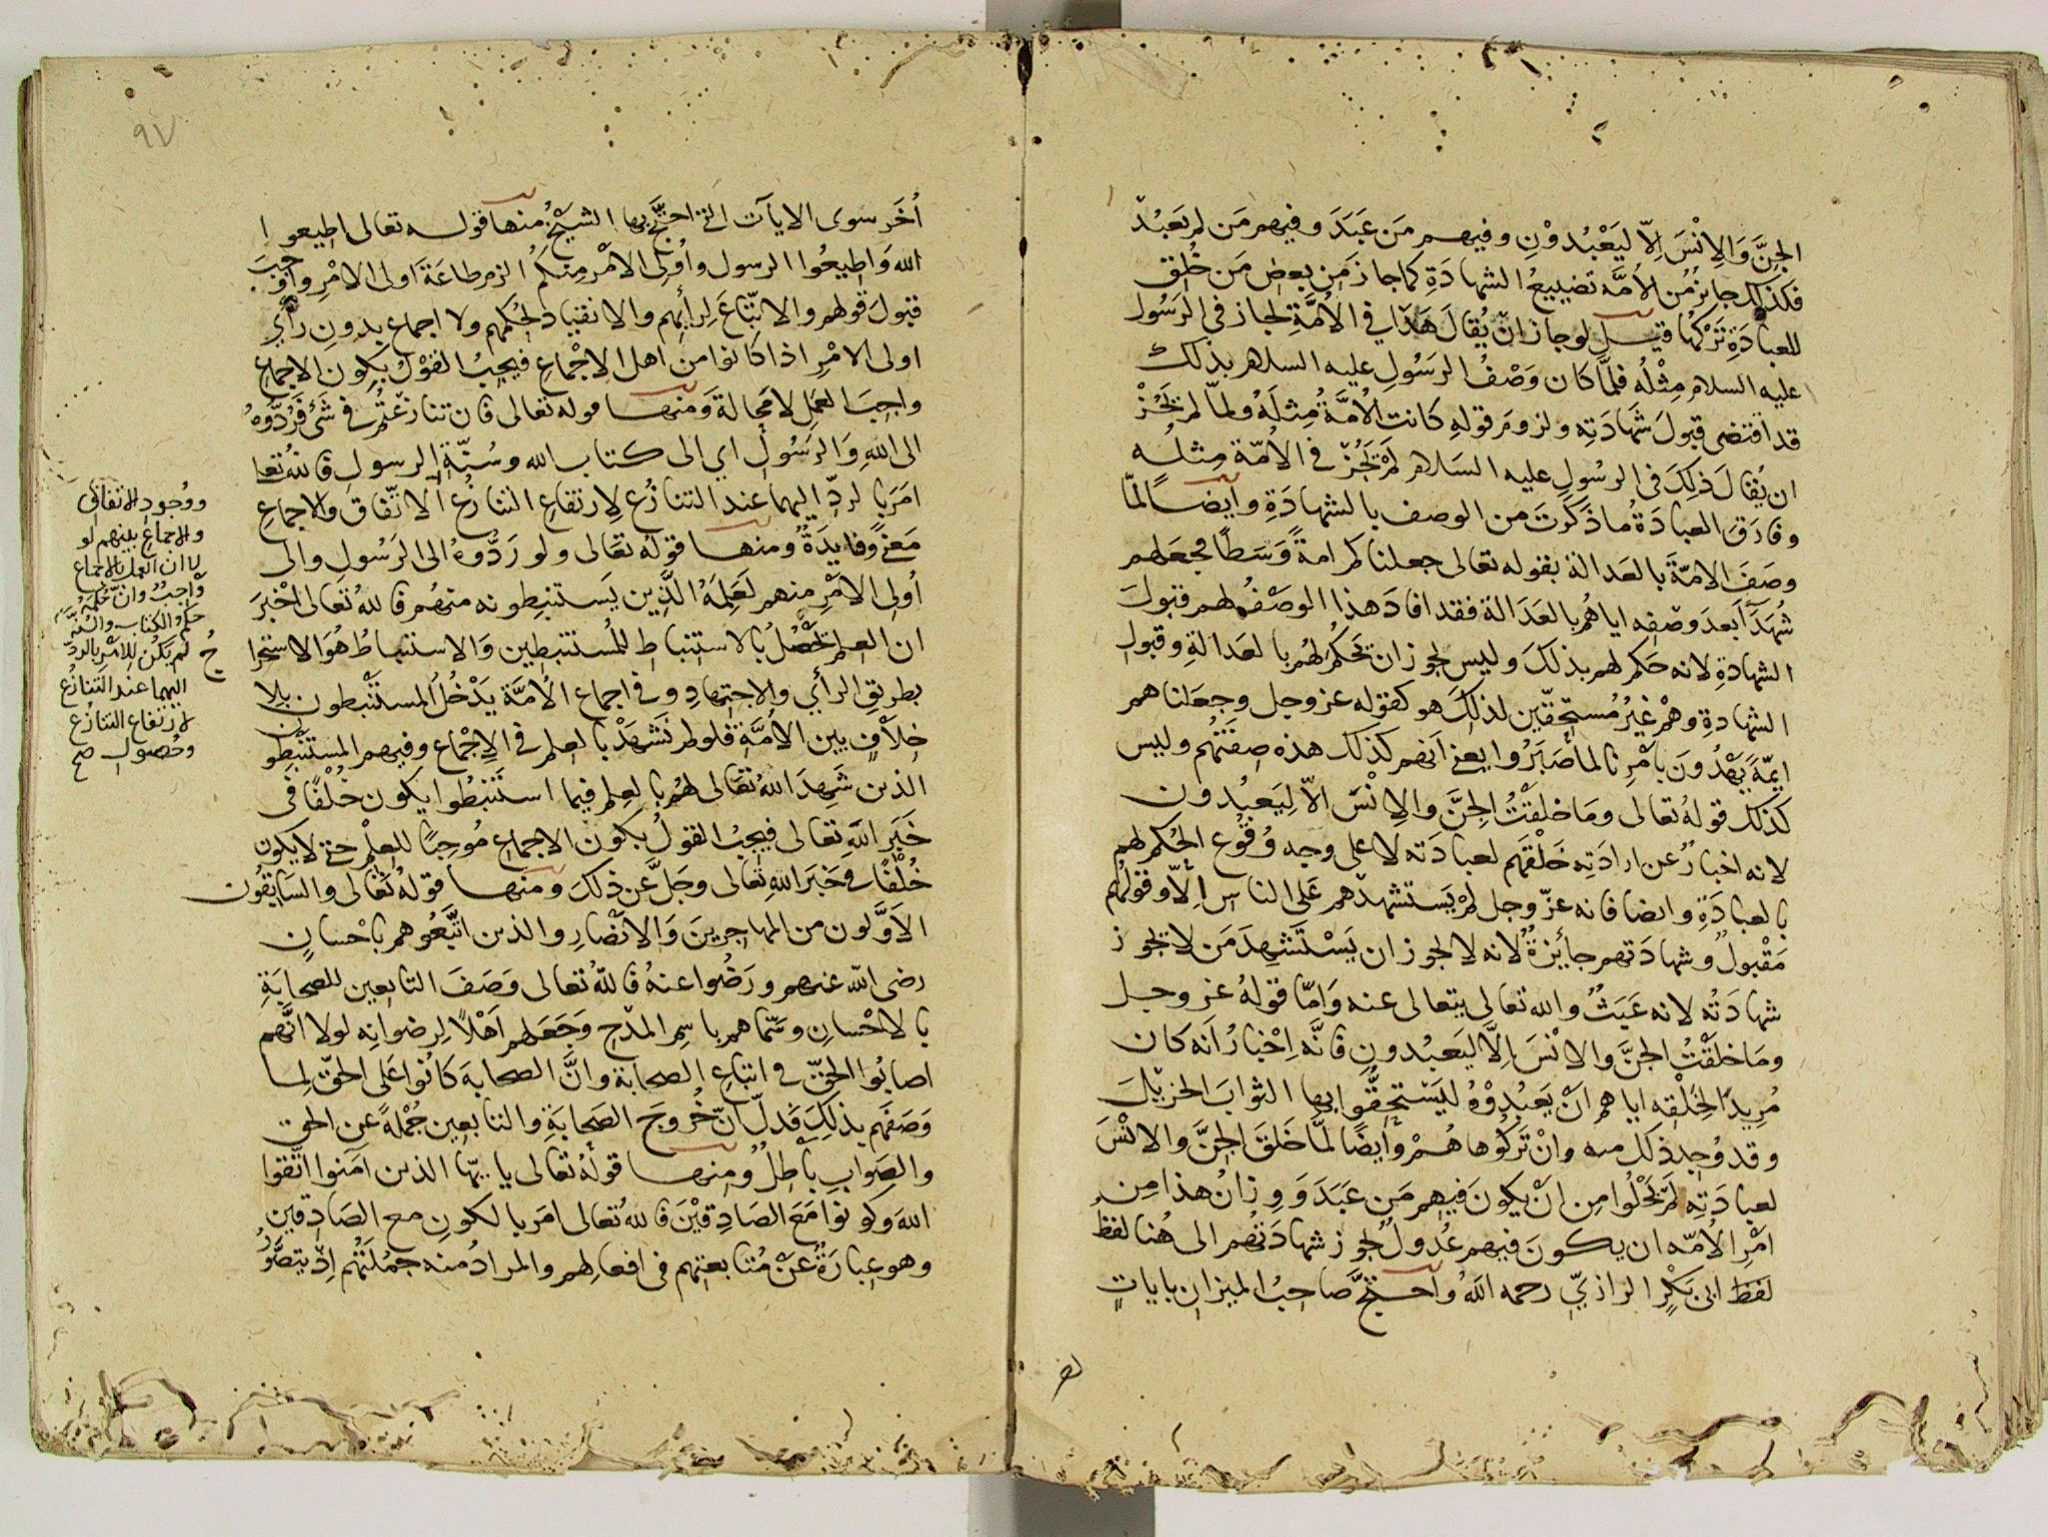 الجِنَّ وَالاِنْسَ اِلّا لِيَعْبُدُوْنِ وفيهم مَن عَبَدَ وفيهم مَن لم يَعْبُدْ
فكذلك جايزٌ مِن الاُمَّه تضييعُ الشهادَةِ كما جاز مِن بعض مَن خُلِق
للعبادَةِ تَرْكُها قيل لو جاز انْ يُقالَ هَذا في الاُمَّةِ لجاز في الرَسُول
عليه السلام مِثْلُه فلمّا كان وَصْفُ الرَسُولِ عليه السلام بذلك
قد اقتضى قبولَ شَهادَتِه ولزومَ قولهِ كانت الاُمَّةُ مِثلَهُ ولمّا لم يَجُزْ
ان يُقالَ ذلِكَ في الرسُولِ عليه السَلام لَمْ يَجُزْ في الاُمّة مِثله
وفارَقَ العبادَةُ ما ذَكَرتَ من الوصف بالشهادَةِ وايضًا لمّا
وصَفَ الامّةَ بالعَدالة بقوله تعالى جعلناكم امةً وَسَطًا فجعلهم
شُهَدَآ بَعدَ وَصْفِه اياهُم بالعَدَالة فقد افادَ هذا الوصْفُ لهم قبولَ
الشهادَةِ لانه حَكم لهم بذلكَ وليس يجوز ان يَحكُمَ لهُم بالعَدالةِ وقبولِ
الشهادةِ وهُمْ غيرُ مُستحِقّين لذلكَ هو كقوله عز وجل وجعَلناهم
ايمّةً يَهْدُونَ بامْرِنا لمّا صَبَرُوا يعني اَنهم كذلك هذه صِفَتُهُم وليس
كذلك قولهُ تعالى وَمَا خلَقْتُ الجِنَّ والاِنْسَ الاّ لِيَعبُدون
لانه اخبارٌ عن ارادَتِه خَلْقَهم لعبادَته لا على وجه وُقُوع الحُكم لهم
بالعبادَةِ وايضا فانه عزّ وجل لَمْ يَستشهِدْهم عَلى الناس اِلّا وقولُهُم
مَقْبولٌ وشهادَتهم جائزةٌ لانه لا يجوز ان يَسْتَشهِدَ مَن لا يجوز
شهادَتُه لانه عَبَثٌ والله تعالى يتعالى عنه وَامّا قولهُ عز وجل
ومَا خَلَقْتُ الجنَّ والانْسَ اِلَّا ليَعبُدونِ فَانَّه اِخْبارُ انَه كان
مُريدًا لخَلْقِه اياهم انْ يَعبُدُوْهُ ليَسْتحِقُّوا بها الثوابَ الجزيْلَ
وقد وُجِد ذلك منه وانْ تَرَكُوها هُمْ وايضًا لمّا خَلقَ الجِنَّ والانْسَ
لعبادَتِه لم يَخْلُوا مِن انْ يكونَ فيهم مَن عَبَدَ وَوِزانُ هذا مِن
امْرِ الاُمّه ان يكونَ فيهم عُدُولٌ يجوز شهادَتُهم الى هُنا لفظُ
لفظ ابى بَكْرٍ الرازيّ رحمه اللهُ واحتجَّ صاحبُ الميزان بايَاتٍ
٩٧
اُخَر سوى الايآت التى احتجَّ بها الشيخُ منها قوله تعالى اطيعوا
الله وَاطيعُوا الرسول واُولى الاَمْر مِنكم الزم طاعَةَ اولى الامْرِ واوْجَبَ
قبولَ قولهم والاتّباعَ لِرأيهم والانقيادَ لحُكمهم ولا اجماع بدونِ رأي
اولى الامْرِ اذا كانوا من اهل الاِجْماعِ فيجبُ القوْلُ بكون الاجماعِ
واجِبَ العَمَلِ لا مَحالة وَمنها قوله تعالى فان تنازعْتُم في شَئ فَرُدُّوهُ
الى اللهِ وَالرَسُول اي الى كتاب الله وسُنّةِ الرسول فاللهُ تعا
امَرَ بالردّ اليهما عند التنازُع لاِرتفاعِ التنازعُ الاتّفاق والاجماع
مَعنًى وفايدَةٌ ومنها قولهُ تعَالى ولو رَدُّوهُ الى الرَسُولِ والى
اُولى الامْرِ منهم لَعَلِمَهُ الذّين يَستنبِطونه منهُم فاللهُ تعالى اخْبَرَ
ان العِلمَ يَحْصُلُ بالاستنباط للمُستنبطين وَالاستنباطُ هُوَ الاستخرا
بطريق الرأيِ والاجتهادِ وفي اجماع الاُمَّة يَدْخُلُ المستنْبطون بلا
خلافٍ بين الامَّة فلو لم نَشْهَدْ بالعِلم في الاِجْماع وفيهم المستنبِطُون
الذين شَهِدَ اللهُ تعَالى لهُم بالعِلم فيما استَنبَطُوا يكون خُلْفًا في
خَبَرِ اللهِ تعالى فيجبُ القولُ بكون الاجماع مُوجِبًا للعِلْمِ حتى لا يكون
خُلْفًا في خَبَر اللهِ تعالى وجَلَّ عَن ذلكَ ومنها قولهُ تعَالى والسَابِقُون
الاَوَّلون من المهاجِرينَ وَالاَنْصَارِ والذين اتَّبَعُوهم باحْسانٍ
رضى اللهُ عنهم ورَضُوا عنهُ فاللهُ تعالى وَصَفَ التابعين للصحابَةِ
بالاحْسانِ وسَمّاهم باسمِ المدْحِ وَجَعَلهم اَهْلًا لِرضوانِه لولا انَّهم
اصابُوا الحَقَّ في اتباع الصحابة وانَّ الصحابة كانُوا على الحقّ لِما
وَصَفَهم بذلكَ فَدلّ انّ خُروجَ الصَحابَةِ والتابعين جُمْلةً عن الحق
والصَوابِ بَاطِلٌ ومنها قولُهُ تعالى يايهّا الذين آمَنوا اتّقوا
اللهَ وكونوا مَعَ الصَادِقيْنَ فاللهُ تعالى امَر بالكون مع الصَادِقين
وهو عبارَةٌ عَنْ مُتابعتهم في افعالهم والمرادُ منه جمُلَتُهُم اِذْ يتصَوَّرُ
ووُجود الاتفاق
والاجماع بينهم لو
لا ان العمل بالاجماع
واجبٌ وانّ حُكمَهُ
حكم الكتاب والسُنّة
لم يكن للامر بالردّ
اليهما عند التنازع
لارتفاع التنازُع
وحُصول صح